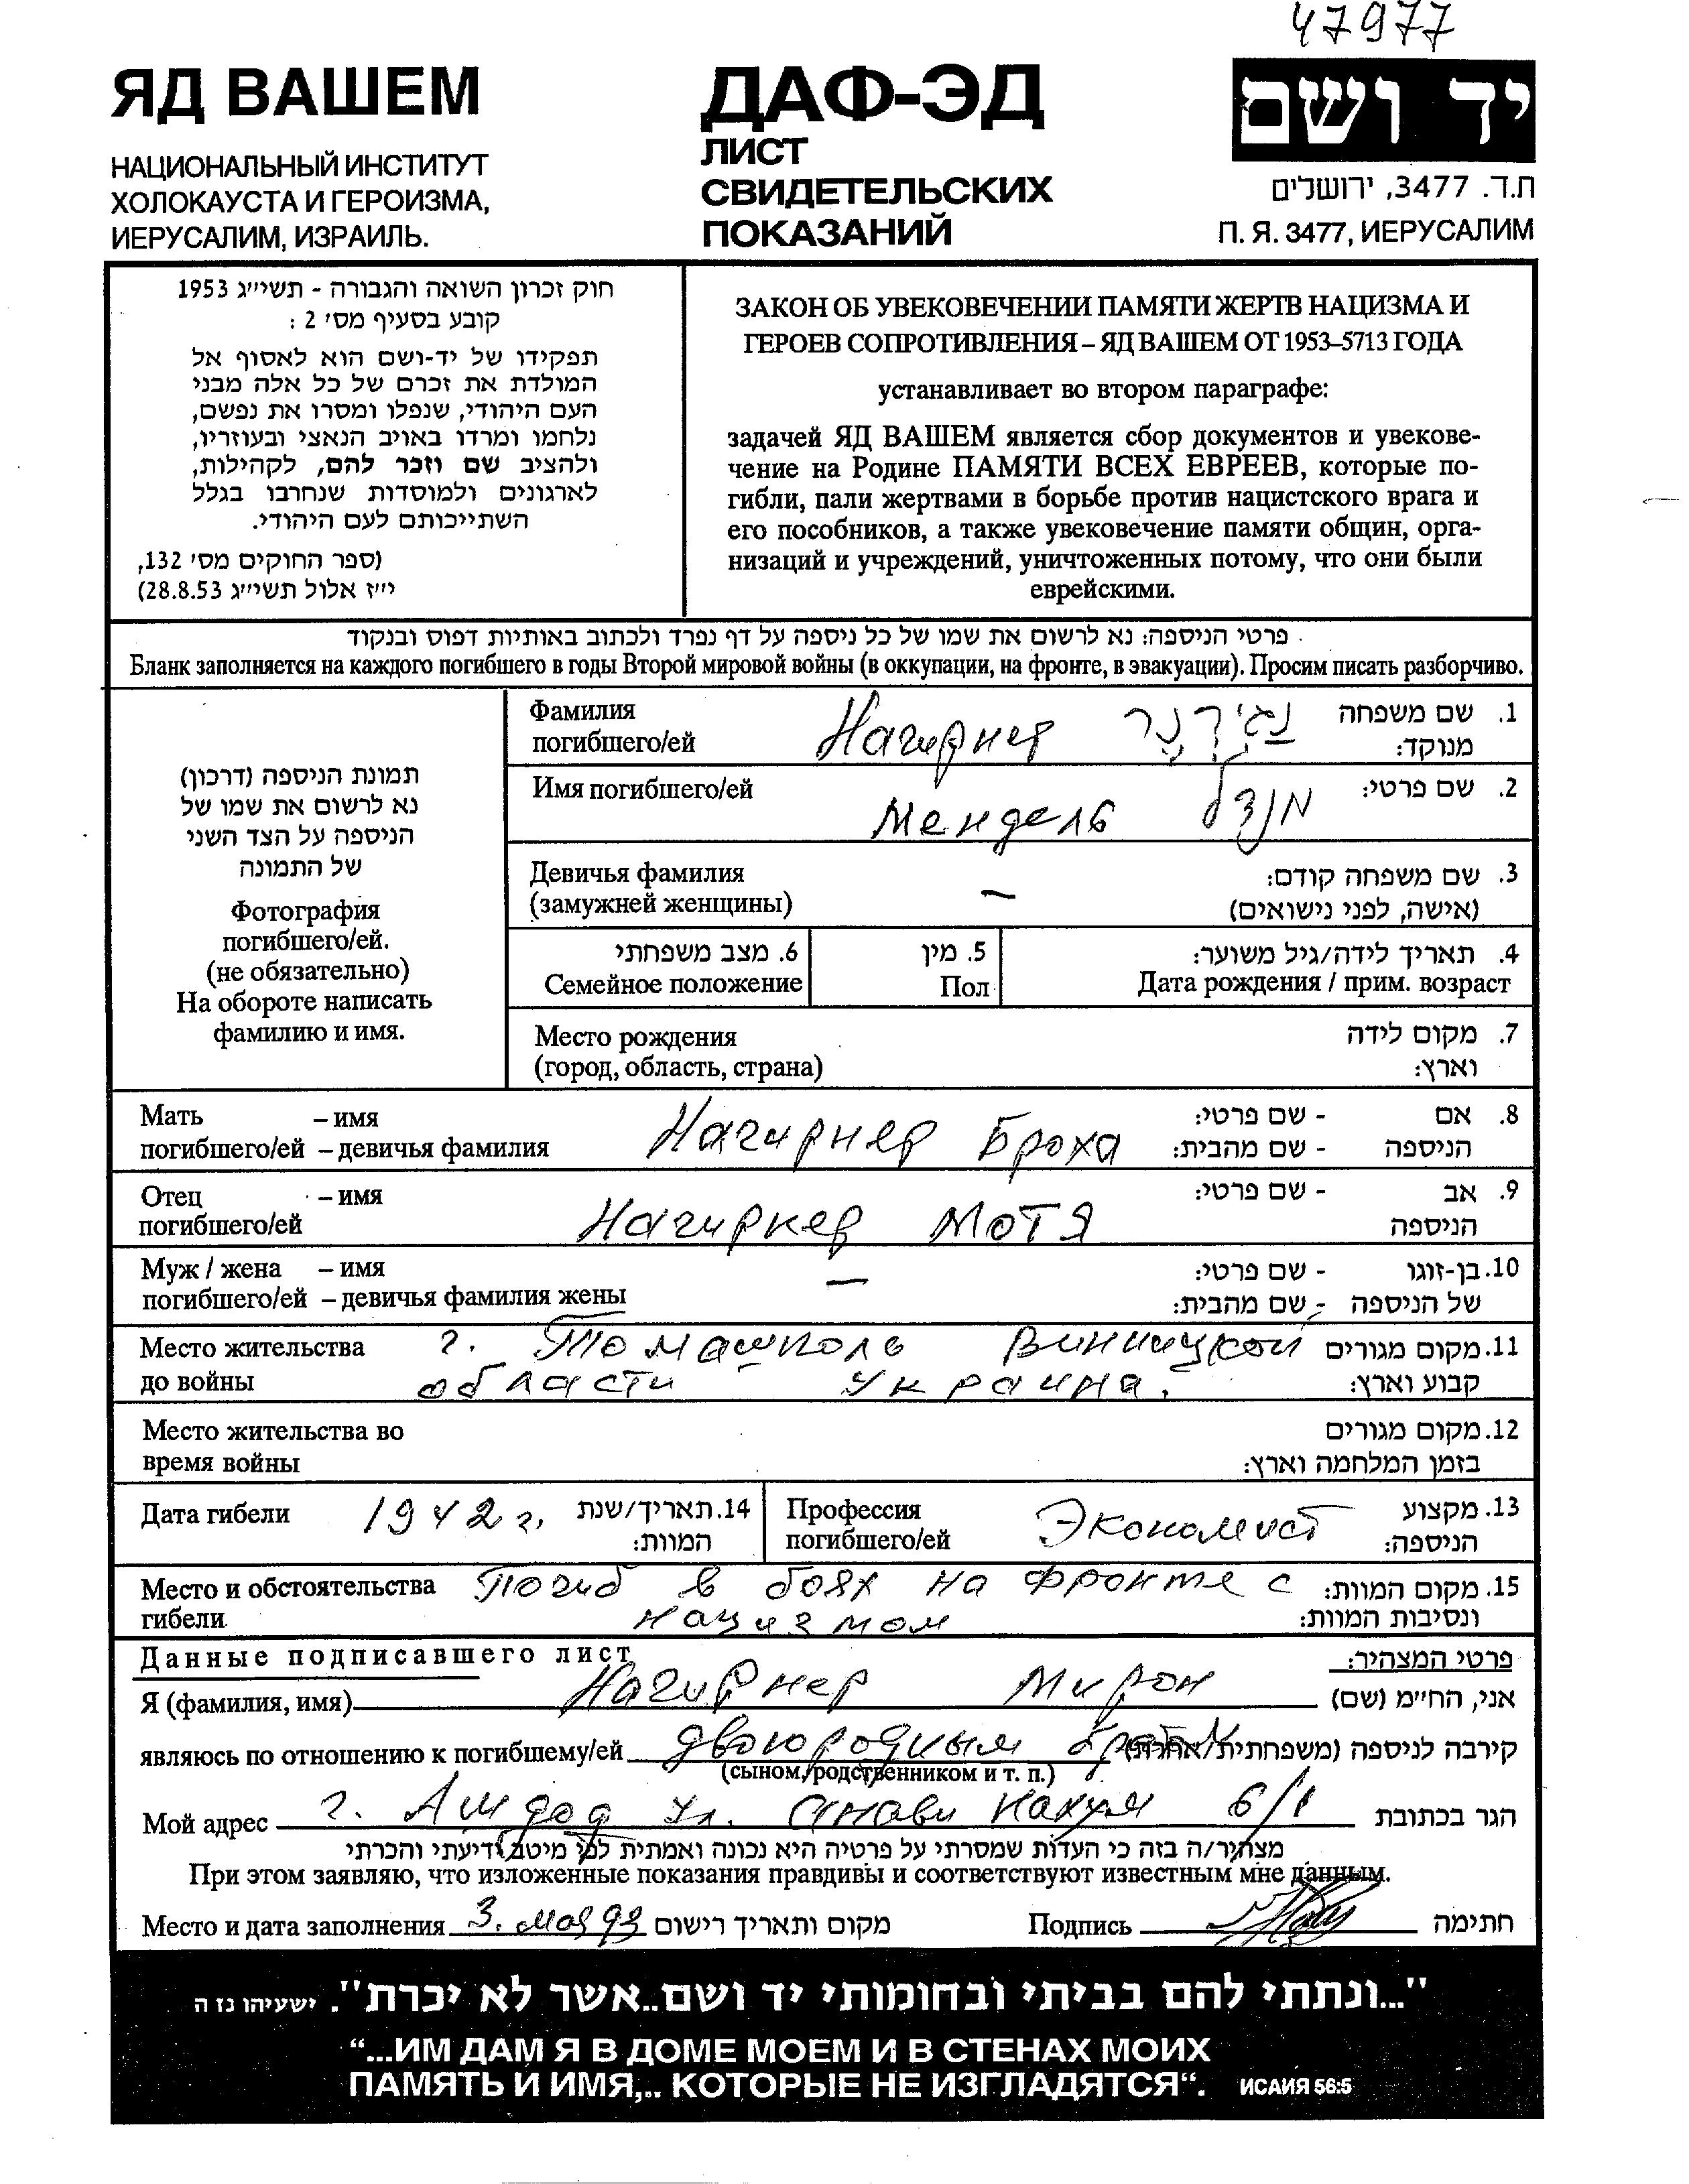 47977
ЯД ВАШЕМ
НАЦИОНАЛЬНЫЙ ИНСТИТУТ
ХОЛОКАУСТА И ГЕРОИЗМА,
ИЕРУСАЛИМ, ИЗРАИЛЬ.
ДАФ-ЭД
ЛИСТ
СВИДЕТЕЛЬСКИХ
ПОКАЗАНИЙ
יד ושם
ת.ד. 3477, ירושלים
П. Я. 3477, ИЕРУСАЛИМ
חוק זכרון השואה והגבורה - תשי״ג 1953
קובע בסעיף מס׳ 2 :
תפקידו של יד-ושם הוא לאסוף אל
המולדת את זכרם של כל אלה מבני
העם היהודי, שנפלו ומסרו את נפשם,
נלחמו ומרדו באויב הנאצי ובעוזריו,
ולהציב שם וזכר להם, לקהילות,
לארגונים ולמוסדות שנחרבו בגלל
השתייכותם לעם היהודי.
(ספר החוקים מס׳ 132,
י״ז אלול תשי״ג 28.8.53)
ЗАКОН ОБ УВЕКОВЕЧЕНИИ ПАМЯТИ ЖЕРТВ НАЦИЗМА И
ГЕРОЕВ СОПРОТИВЛЕНИЯ – ЯД ВАШЕМ ОТ 1953–5713 ГОДА
устанавливает во втором параграфе:
задачей ЯД ВАШЕМ является сбор документов и увекове-
чение на Родине ПАМЯТИ ВСЕХ ЕВРЕЕВ, которые по-
гибли, пали жертвами в борьбе против нацистского врага и
его пособников, а также увековечение памяти общин, орга-
низаций и учреждений, уничтоженных потому, что они были
еврейскими.
פרטי הניספה: נא לרשום את שמו של כל ניספה על דף נפרד ולכתוב באותיות דפוס ובנקוד
Бланк заполняется на каждого погибшего в годы Второй мировой войны (в оккупации, на фронте, в эвакуации). Просим писать разборчиво.
תמונת הניספה (דרכון)
נא לרשום את שמו של
הניספה על הצד השני
של התמונה
Фотография
погибшего/ей.
(не обязательно)
На обороте написать
фамилию и имя.
Фамилия Нагирнер נגירנר 1. שם משפחה
погибшего/ей מנוקד:
Имя погибшего/ей Мендель מנדל 2. שם פרטי:
Девичья фамилия — 3. שם משפחה קודם:
(замужней женщины) (אישה, לפני נישואים)
6. מצב משפחתי 5. מין 4. תאריך לידה/גיל משוער:
Семейное положение Пол Дата рождения / прим. возраст
Место рождения 7. מקום לידה
(город, область, страна) וארץ:
Мать – имя Нагирнер Броха 8. אם - שם פרטי:
погибшего/ей – девичья фамилия הניספה - שם מהבית:
Отец – имя Нагирнер Мотя 9. אב - שם פרטי:
погибшего/ей הניספה
Муж / жена – имя — 10. בן-זוגו - שם פרטי:
погибшего/ей – девичья фамилия жены של הניספה - שם מהבית:
Место жительства г. Томашполь Винницкой 11. מקום מגורים
до войны области Украина. קבוע וארץ:
Место жительства во 12. מקום מגורים
время войны בזמן המלחמה וארץ:
Дата гибели 1942 г. 14. תאריך/שנת המוות:
Профессия Экономист 13. מקצוע
погибшего/ей הניספה:
Место и обстоятельства Погиб в боях на фронте с 15. מקום המוות:
гибели нацизмом ונסיבות המוות:
Данные подписавшего лист פרטי המצהיר:
Я (фамилия, имя) Нагирнер Мирон אני, הח״מ (שם)
являюсь по отношению к погибшему/ей двоюродным братом קירבה לניספה (משפחתית/אחרת)
(сыном, родственником и т. п.)
Мой адрес г. Ашдод ул. Нахум 6/1 הגר בכתובת
מצהיר/ה בזה כי העדות שמסרתי על פרטיה היא נכונה ואמתית לפי מיטב ידיעתי והכרתי
При этом заявляю, что изложенные показания правдивы и соответствуют известным мне данным.
Место и дата заполнения 3. мая 93 מקום ותאריך רישום Подпись חתימה
"...ונתתי להם בביתי ובחומותי יד ושם..אשר לא יכרת". ישעיהו נז ה
“...ИМ ДАМ Я В ДОМЕ МОЕМ И В СТЕНАХ МОИХ
ПАМЯТЬ И ИМЯ,.. КОТОРЫЕ НЕ ИЗГЛАДЯТСЯ“. ИСАИЯ 56:5